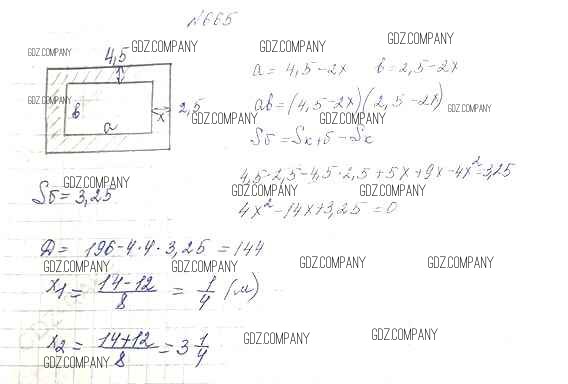 №665
GDZ.COMPANY GDZ.COMPANY GDZ.COMPANY GDZ.COMPANY
4,5
a = 4,5-2x в = 2,5-2x
GDZ.COMPANY
в x 2,5 aв = (4,5-2x)(2,5-2x) GDZ.COMPANY
a GDZ.COMPANY GDZ.COMPANY
Sб = Sк+б - Sк
4,5·2,5-4,5·2,5+5x+9x-4x²=3,25
GDZ.COMPANY GDZ.COMPANY GDZ.COMPANY
Sб = 3,25
4x²-14x+3,25=0
D = 196-4·4·3,25 = 144
GDZ.COMPANY GDZ.COMPANY GDZ.COMPANY GDZ.COMPANY
x1 = 14-12/8 = 1/4 (м)
GDZ.COMPANY GDZ.COMPANY
x2 = 14+12/8 = 3 1/4
GDZ.COMPANY